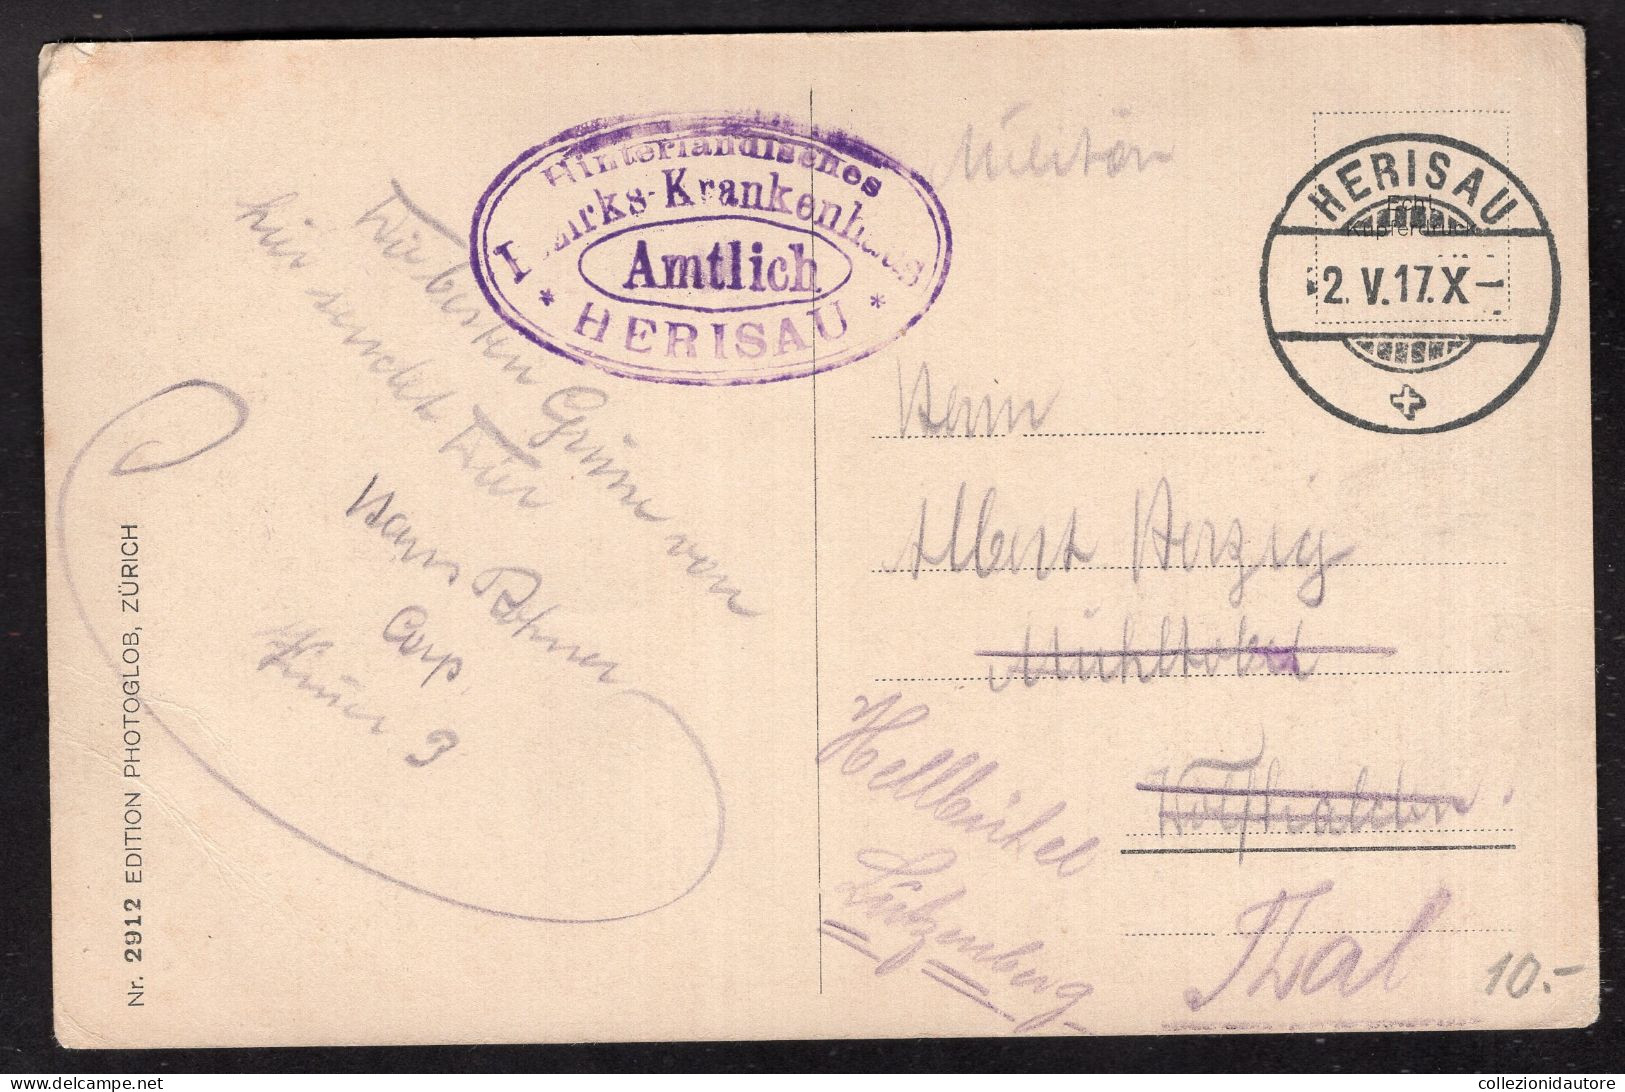 Hinterländisches
Bezirks-Krankenhaus
Amtlich
* HERISAU *
Militär
HERISAU
Echt
Kupferdruck
2. V. 17. X-
Die besten Grüsse von
hier sendet Dir
Hans Rohner
Corp.
Zimer 3
Herrn
Albert Herzig
Mühltobel
Wolfhalden.
Hellbühel
Lutzenberg
Thal
10.-
Nr. 2912 EDITION PHOTOGLOB, ZÜRICH
collezionidautore